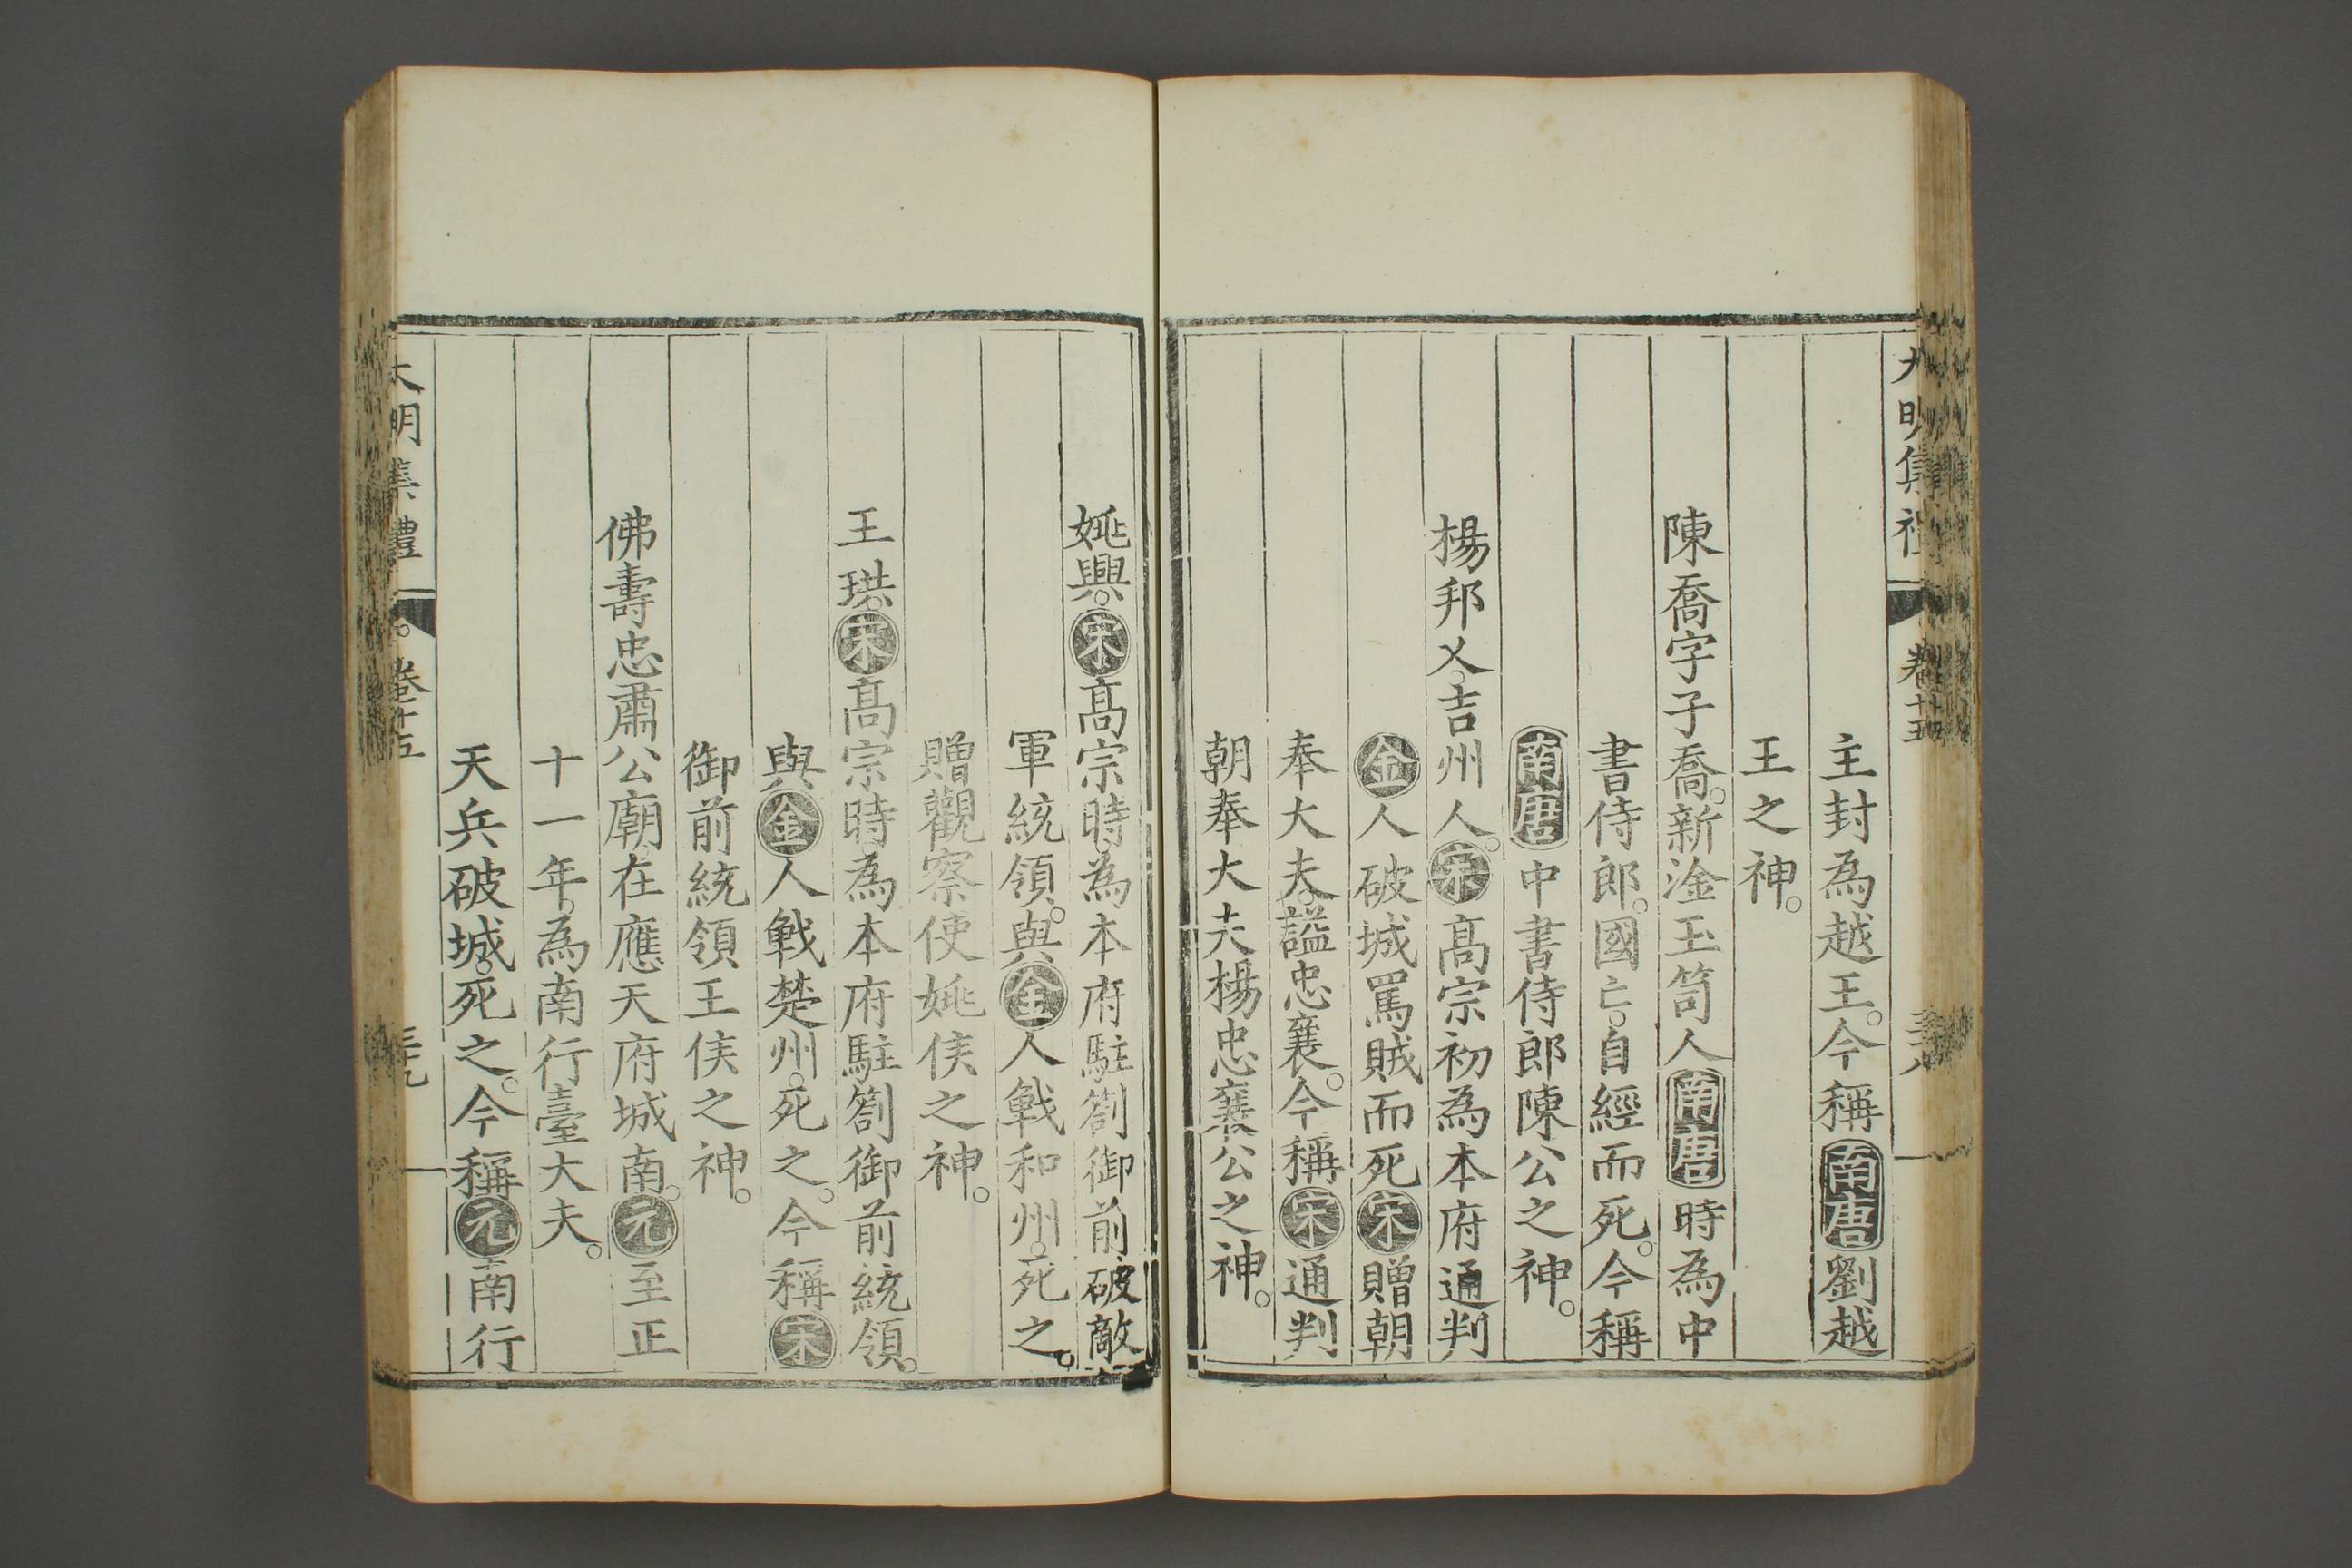 大明集禮 卷十五 三十八
主封為越王。今稱南唐劉越
王之神。
陳喬字子喬。新淦玉笥人南唐時為中
書侍郎。國亡。自經而死。今稱
南唐中書侍郎陳公之神。
楊邦乂。吉州人。宋高宗初為本府通判
金人破城罵賊而死宋贈朝
奉大夫。謚忠襄。今稱宋通判
朝奉大夫楊忠襄公之神。
姚興。宋高宗時。為本府駐劄御前破敵
軍統領。與金人戰和州。死之。
贈觀察使姚侯之神。
王珙。宋高宗時。為本府駐劄御前統領。
與金人戰楚州。死之。今稱宋
御前統領王侯之神。
佛壽忠肅公廟。在應天府城南。元至正
十一年。為南行臺大夫。
天兵破城。死之。今稱元南行
大明集禮 卷十五 三十九